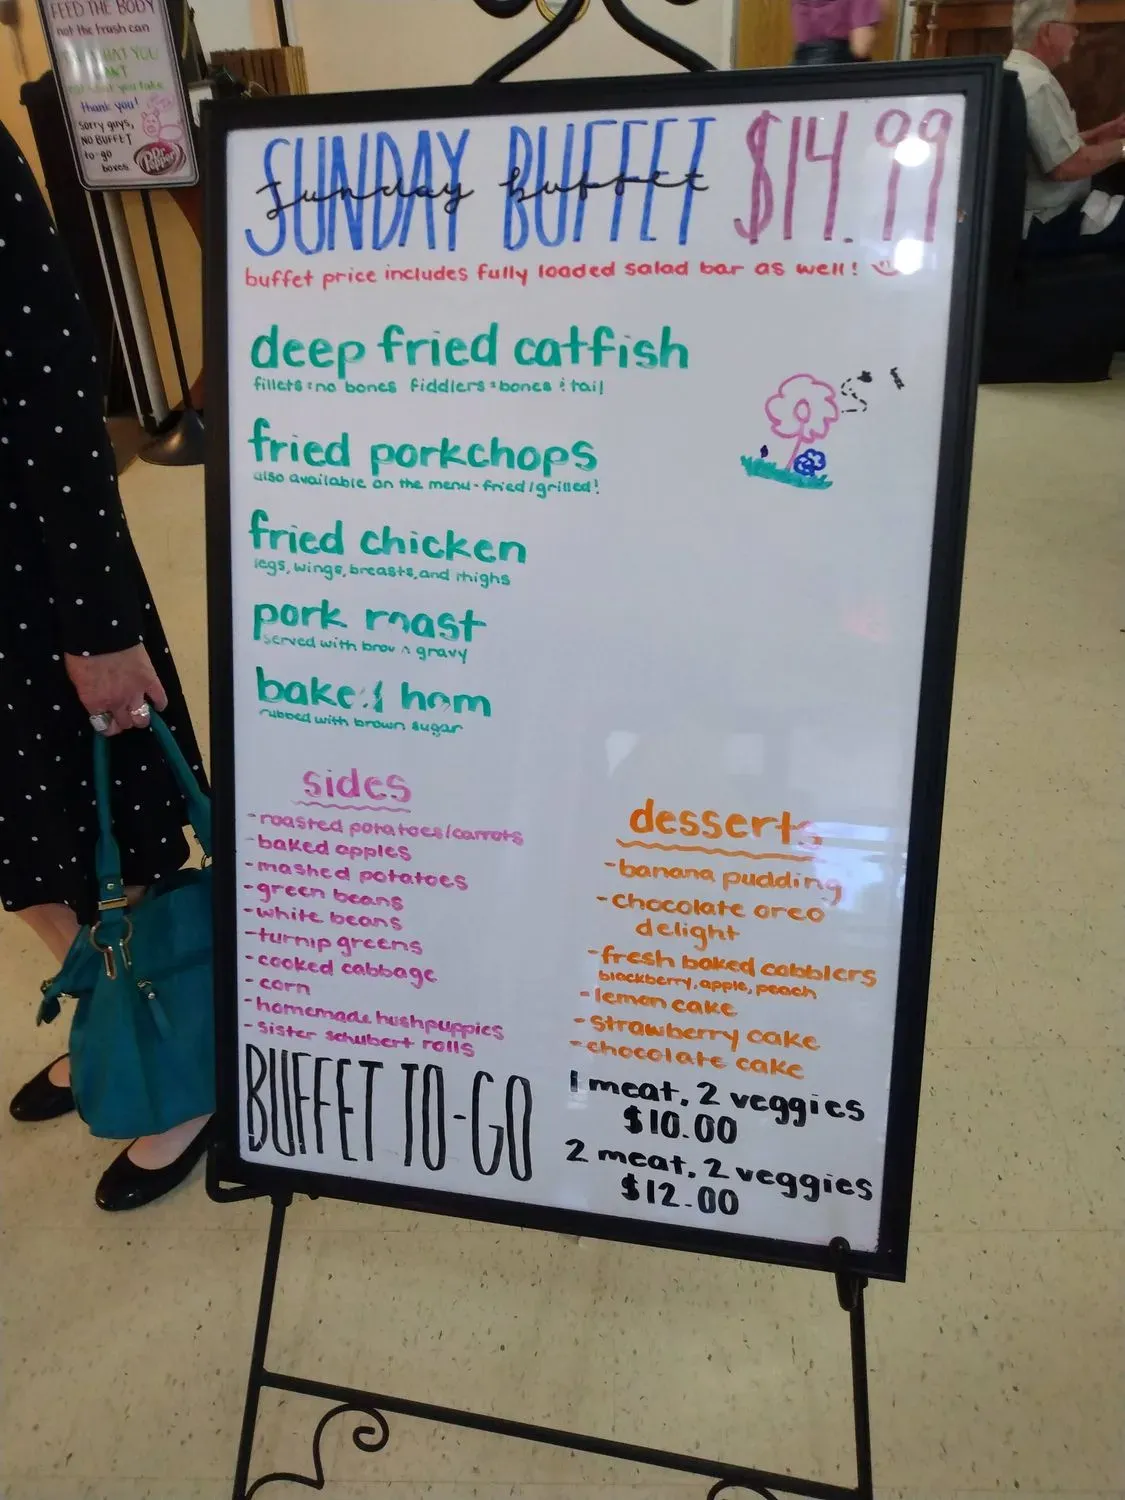 FEED THE BODY
not the trash can
WHAT YOU
thank you!
Sorry guys,
NO BUFFET
to-go
boxes
Dr Pepper
SUNDAY BUFFET $14.99
Sunday buffet
buffet price includes fully loaded salad bar as well!
deep fried catfish
fillets=no bones fiddlers=bones & tail
fried porkchops
also available on the menu-fried/grilled!
fried chicken
legs, wings, breasts, and thighs
pork roast
served with brown gravy
baked ham
rubbed with brown sugar
sides
-roasted potatoes/carrots
-baked apples
-mashed potatoes
-green beans
-white beans
-turnip greens
-cooked cabbage
-corn
-homemade hushpuppies
-sister schubert rolls
desserts
-banana pudding
-chocolate oreo
delight
-fresh baked cobblers
blackberry, apple, peach
-lemon cake
-strawberry cake
-chocolate cake
BUFFET TO-GO
1 meat, 2 veggies
$10.00
2 meat, 2 veggies
$12.00